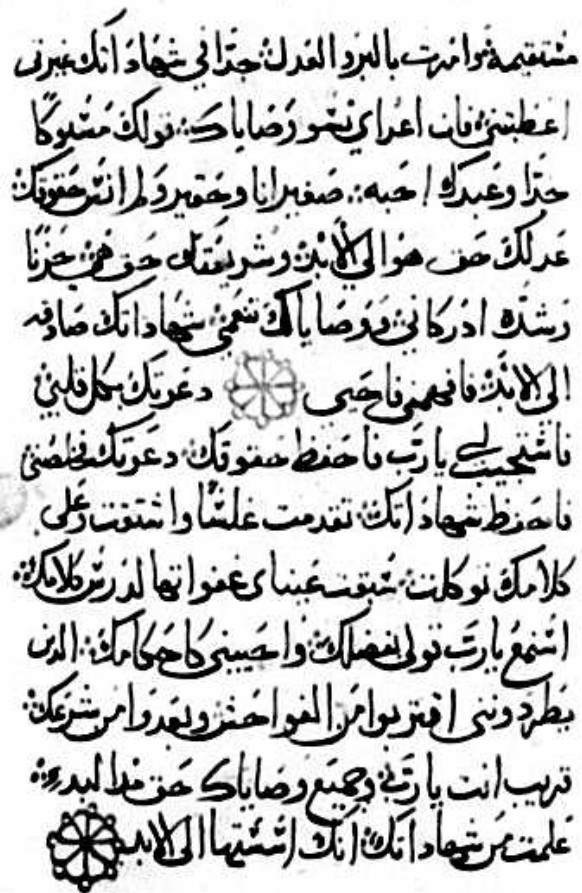 مستقيمة وامرت بالبر والعدل جدا في شهاداتك غيرتى
اعطبتنى فان اعداي نسو وصاياك قولك مسبوكا
جدا وعبدك احبه صغير انا وحقير ولم انس حقوقك
عدلك حق هو الى الابد وشريعتك حق هى حزنا
وشدة ادركانى ووصاياك نعمى شهاداتك صادقه
الى الابد فافهمنى فاحيى دعوتك بكل قلبى
فاستجيب لي يارب فاحفظ حقوقك دعوتك فخلصنى
فاحفظ شهاداتك تقدمت غلسا واشتقت وعلى
كلامك توكلت سبقت عيناى غفواتها لدرس كلامك
استمع يارب قولى بفضلك واحيينى كاحكامك الذين
يطردوننى اقتربوا من الفواحش وبعدوا من شرعك
قريب انت يا رب وجميع وصاياك حق مذ البدء
علمت من شهاداتك انك اسستها الى الابد